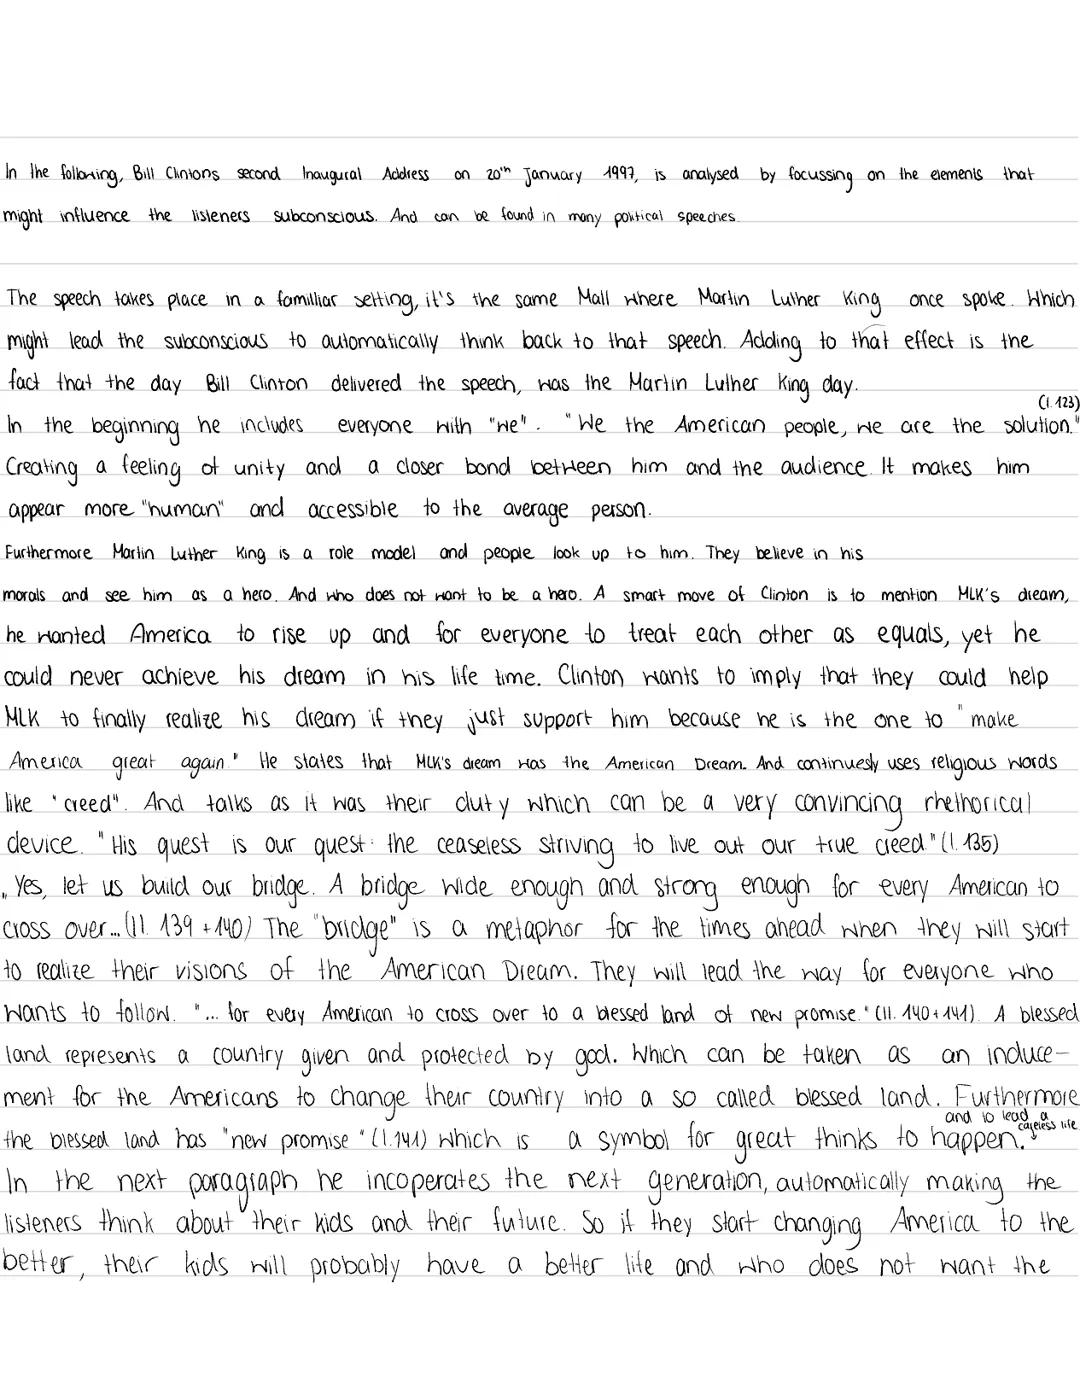 In the following, Bill Clintons second Inaugural Address on 20th January 1997, is analysed by focussing on the elements that
might influence the listeners subconscious. And can be found in many political speeches.
The speech takes place in a familliar setting, it's the same Mall where Martin Luther King once spoke. Which
might lead the subconscious to automatically think back to that speech. Adding to that effect is the
fact that the day Bill Clinton delivered the speech, was the Martin Luther King day.
(l. 123)
In the beginning he includes everyone with "we". "We the American people, we are the solution."
Creating a feeling of unity and a closer bond between him and the audience. It makes him
appear more "human" and accessible to the average person.
Furthermore Martin Luther King is a role model and people look up to him. They believe in his
morals and see him as a hero. And who does not want to be a hero. A smart move of Clinton is to mention MLK's dream,
he wanted America to rise up and for everyone to treat each other as equals, yet he
could never achieve his dream in his life time. Clinton wants to imply that they could help
MLK to finally realize his dream if they just support him because he is the one to "make
America great again." He states that MLK's dream was the American Dream. And continuesly uses religious words
like "creed". And talks as it was their duty which can be a very convincing rhethorical
device. "His quest is our quest: the ceaseless striving to live out our true creed." (l. 135)
„Yes, let us build our bridge. A bridge wide enough and strong enough for every American to
cross over... (ll. 139 + 140) The "bridge" is a metaphor for the times ahead when they will start
to realize their visions of the American Dream. They will lead the way for everyone who
wants to follow. "... for every American to cross over to a blessed land of new promise." (ll. 140 + 141). A blessed
land represents a country given and protected by god. Which can be taken as an induce-
ment for the Americans to change their country into a so called blessed land. Furthermore
and to lead a careless life
the blessed land has "new promise" (l. 141) which is a symbol for great thinks to happen.
In the next paragraph he incoperates the next generation, automatically making the
listeners think about their kids and their future. So if they start changing America to the
better, their kids will probably have a better life and who does not want the